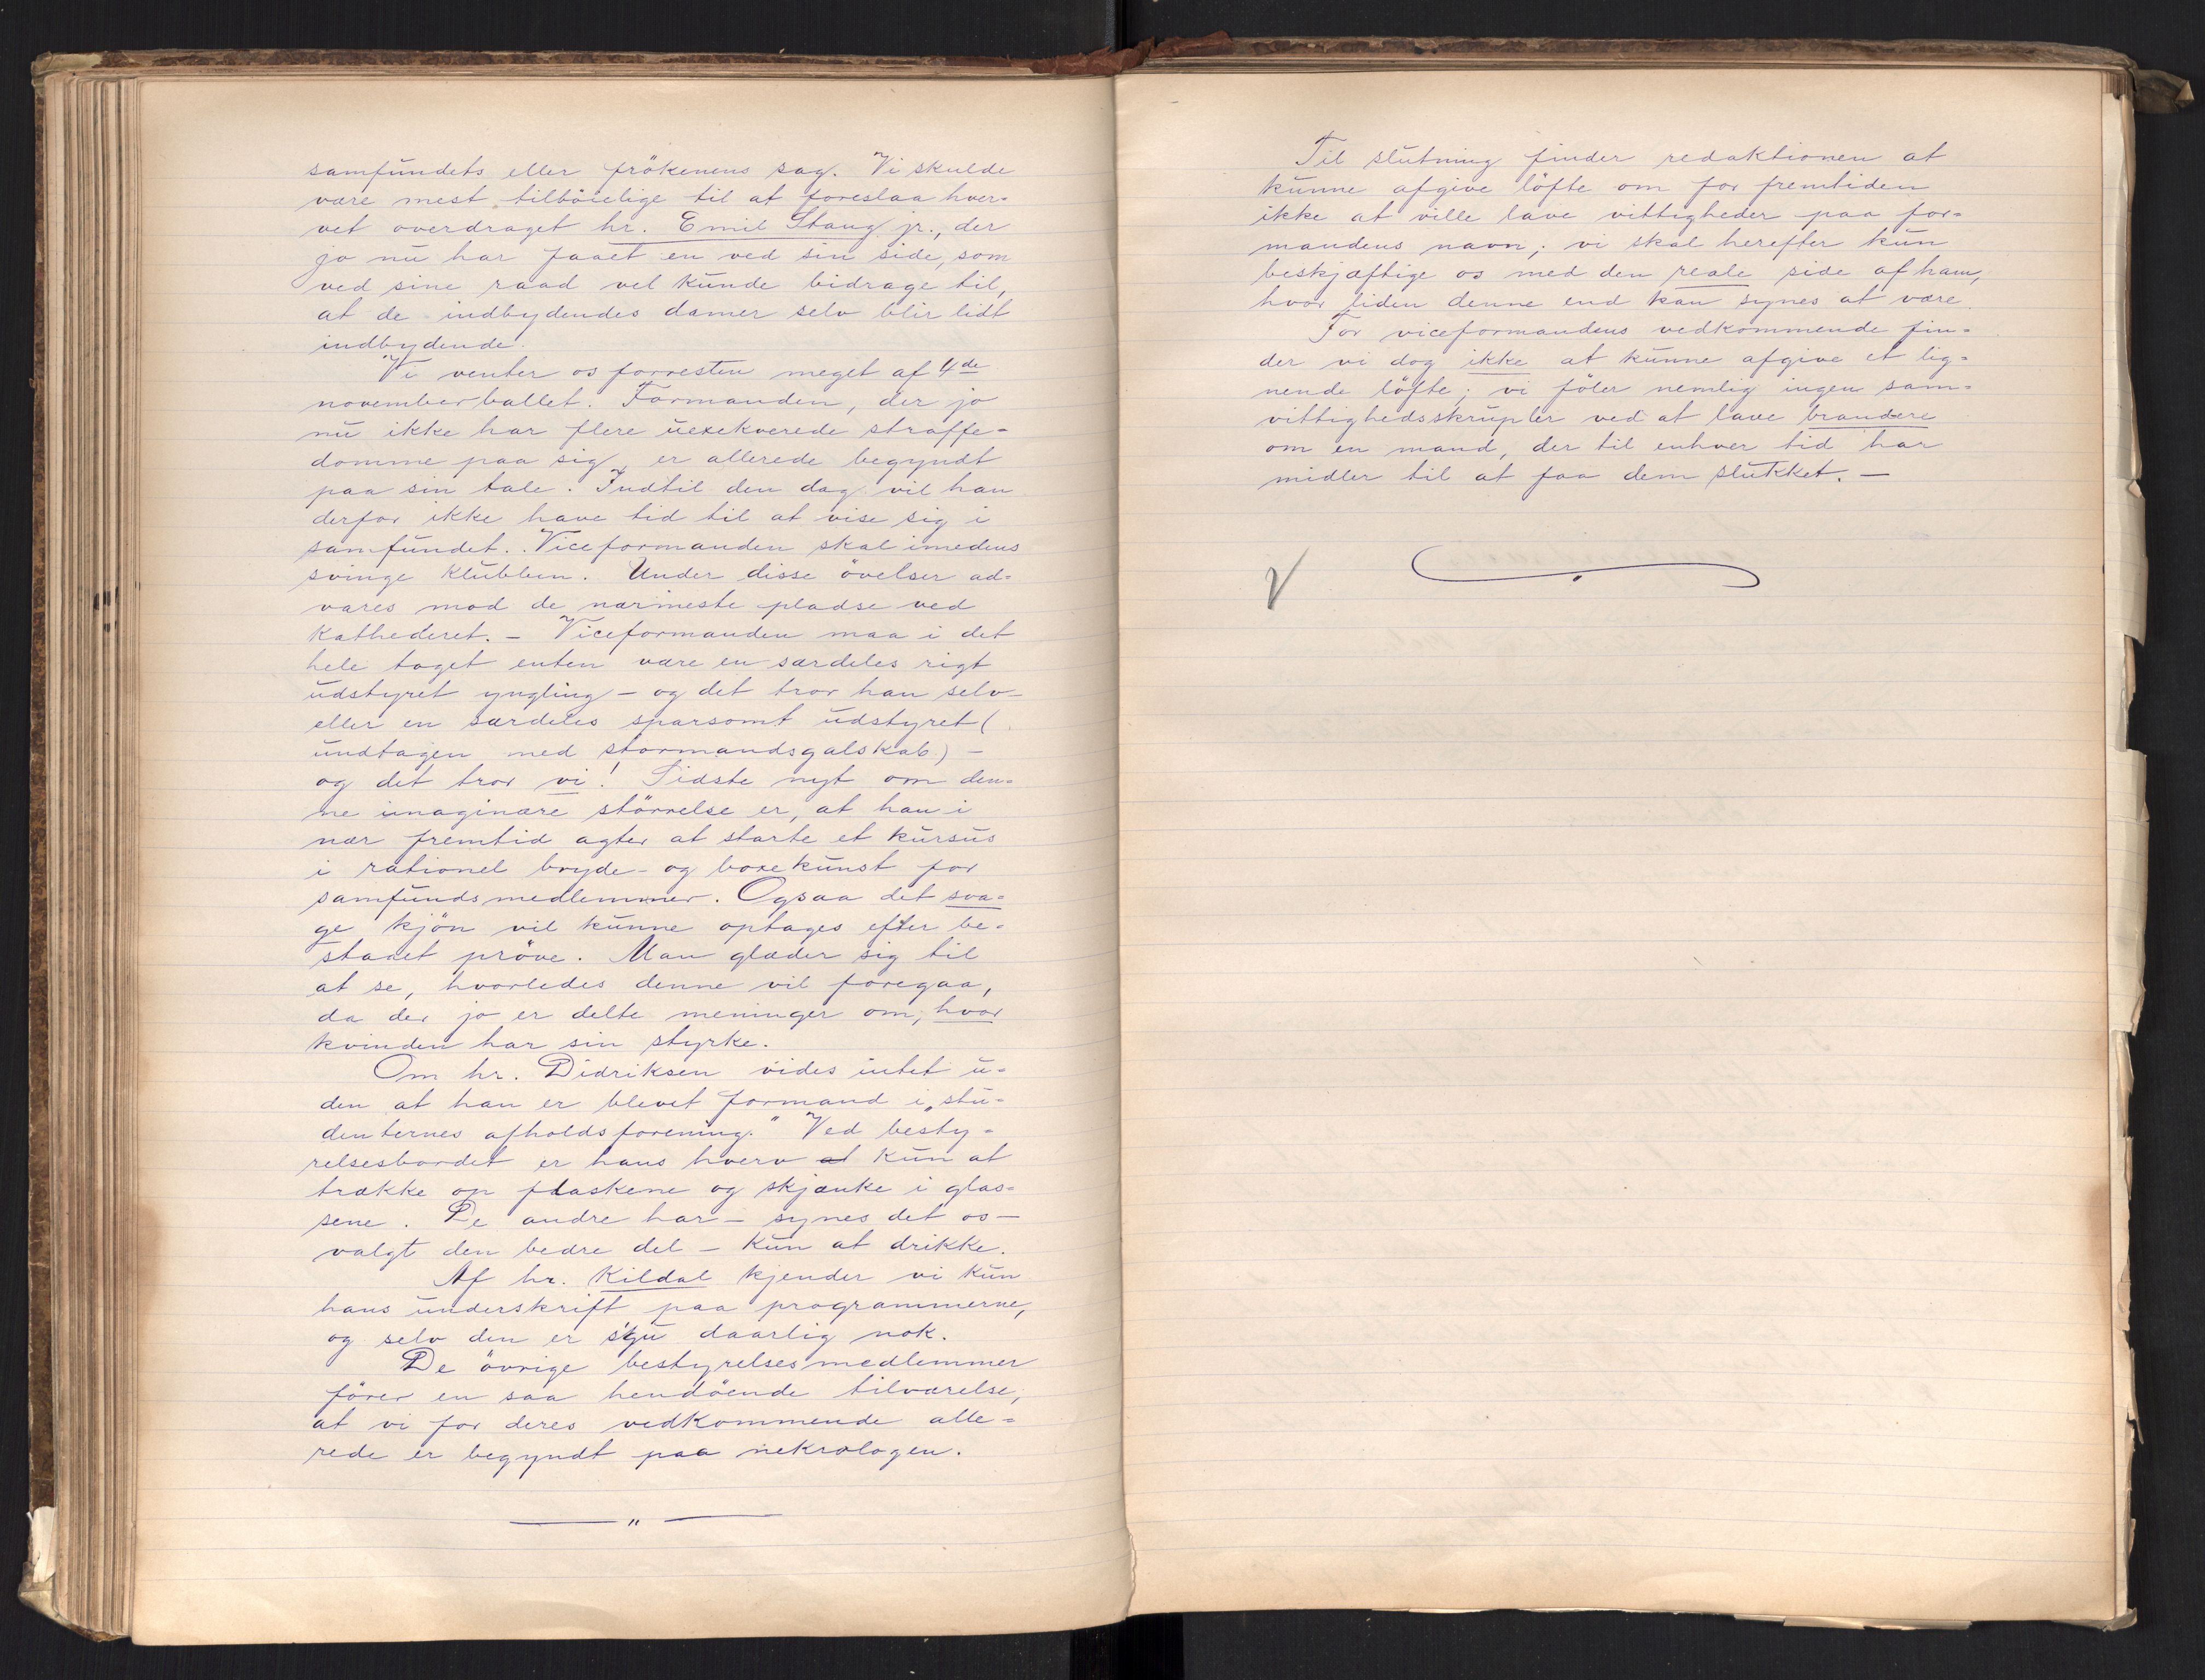 samfundets eller frökenens sag. Vi skulde
være mest tilböielige til at foreslaa hver-
vet overdraget hr. Emil Stang jr., der
jo nu har faaet en ved sin side, som
ved sine raad vel kunde bidrage til,
at de indbydendes damer selv blir lidt
indbydende.
Vi venter os forresten meget af 4de
novemberballet. Formanden, der jo
nu ikke har flere uexekverede straffe-
domme paa sig, er allerede begyndt
paa sin tale. Indtil den dag vil han
derfor ikke have tid til at vise sig i
samfundet. Viceformanden skal imedens
svinge klubben. Under disse övelser ad-
vares mod de nærmeste pladse ved
kathederet. – Viceformanden maa i det
hele taget enten være en særdeles rigt
udstyret yngling – og det tror han selv –
eller en særdeles sparsomt udstyret (
undtagen med stormandsgalskab) –
og det tror vi! Sidste nyt om den-
ne imaginære störrelse er, at han i
nær fremtid agter at starte et kursus
i rationel bryde- og boxekunst for
samfundsmedlemmer. Ogsaa det sva-
ge kjön vil kunne optages efter be-
staaet pröve. Man glæder sig til
at se, hvorledes denne vil foregaa,
da der jo er delte meninger om, hvor
kvinden har sin styrke.
Om hr. Didriksen vides intet u-
den at han er blevet formand i „stu-
denternes afholdsforening." Ved besty-
relsesbordet er hans hverv at kun at
trække op flaskene og skjænke i glas-
sene. De andre har – synes det os –
valgt den bedre del – kun at drikke.
Af hr. Kildal kjender vi kun
hans underskrift paa programmerne,
og selv den er s'gu daarlig nok.
De övrige bestyrelsesmedlemmer
förer en saa hendöende tilværelse,
at vi for deres vedkommende alle-
rede er begyndt paa nekrologen.
— " —
Til slutning finder redaktionen at
kunne afgive löfte om for fremtiden
ikke at ville lave vittigheder paa for-
mandens navn; vi skal herefter kun
beskjæftige os med den reale side af ham,
hvor liden denne end kan synes at være.
For viceformandens vedkommende fin-
der vi dog ikke at kunne afgive et lig-
nende löfte; vi föler nemlig ingen sam-
vittighedsskrupler ved at lave brandere
om en mand, der til enhver tid har
midler til at faa dem slukket. –